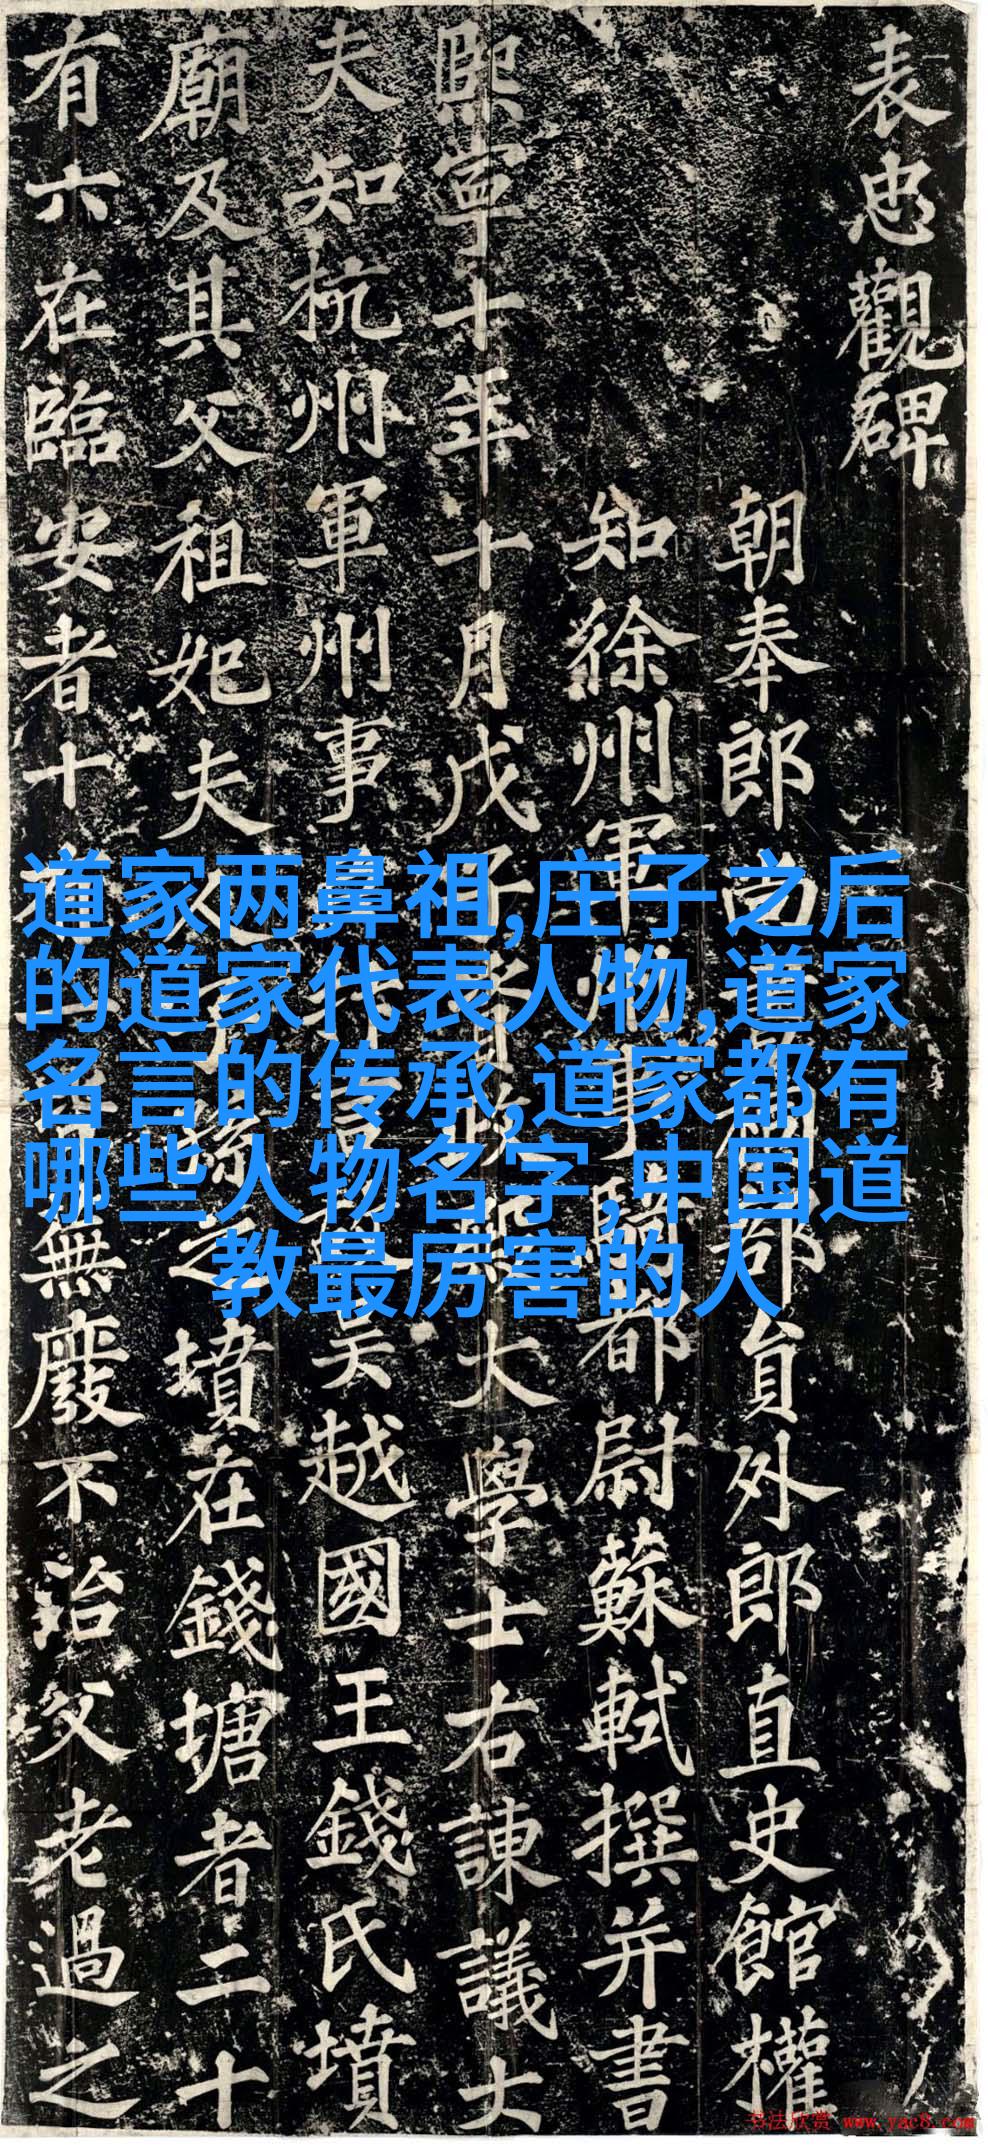 表忠觀碑
朝奉郎尚部員外郎直史館權
知徐州軍州事騎都尉蘇軾撰并書
熙寧十年十月戊子殿大學士右諫議大
夫知杭州軍州事言故吳越國王錢氏墳
廟及其父祖妃夫人孫之墳在錢塘者二十
有六在臨安者十有無廢不治父老過之
道家两鼻祖,庄子之后
的道家代表人物,道家
名言的传承,道家都有
哪些人物名字,中国道
教最厉害的人
书法欣赏 www.yac8.com